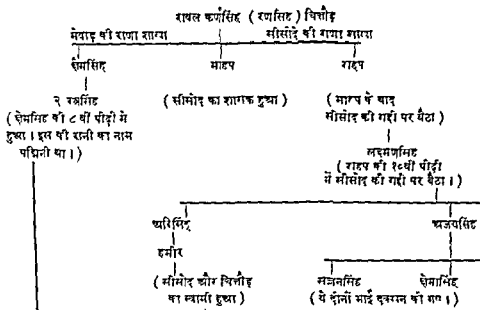 रावल कर्णसिंह (रणसिंह) चित्तौड़
मेवाड़ की राणा शाखा सीसोदे की राणा शाखा
क्षेमसिंह माहप राहप
२ रत्नसिंह
(क्षेमसिंह की ८ वीं पीढ़ी में
हुआ । इस की रानी का नाम
पद्मिनी था ।)
(सीसोद का शासक हुआ)
(माहप के बाद
सीसोद की गद्दी पर बैठा)
लक्ष्मणसिंह
(राहप की १०वीं पीढ़ी
में सीसोद की गद्दी पर बैठा ।)
अरिसिंह अजयसिंह
हमीर
(सीसोद और चित्तौड़
का स्वामी हुआ)
सज्जनसिंह क्षेमसिंह
(ये दोनों भाई दक्खन को गए ।)